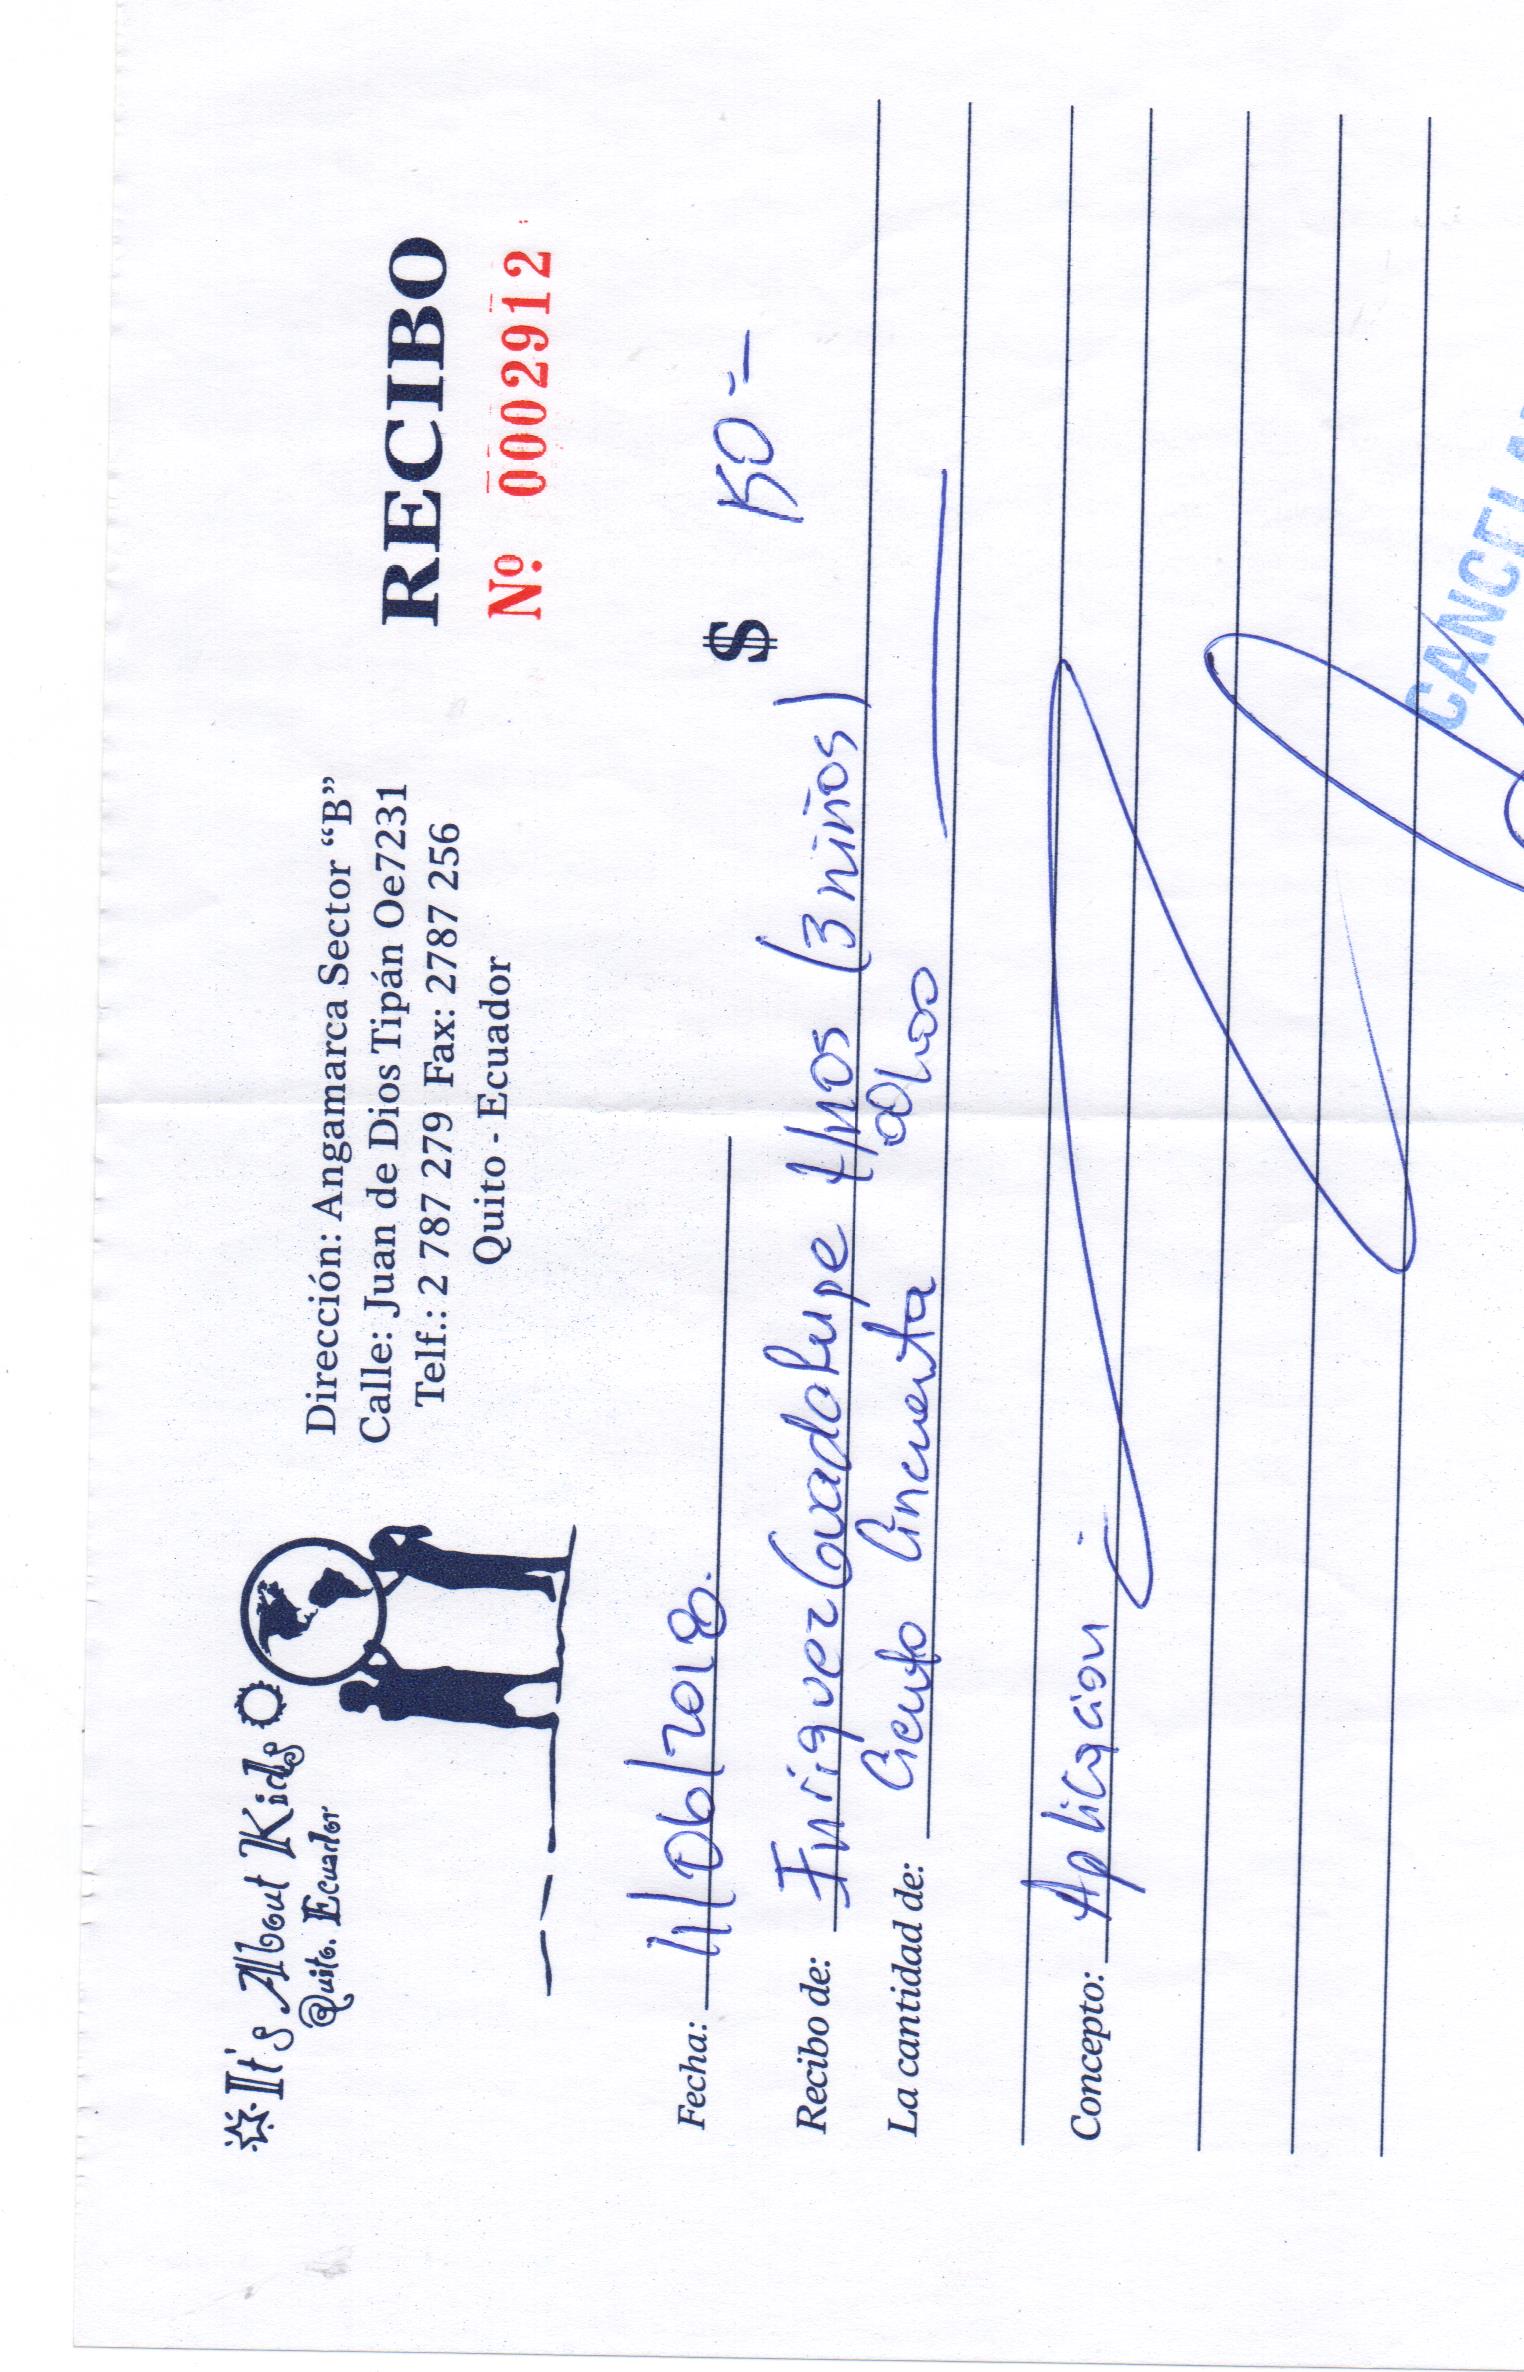 It's About Kids
Quito. Ecuador
Dirección: Angamarca Sector “B”
Calle: Juan de Dios Tipán Oe7231
Telf.: 2 787 279 Fax: 2787 256
Quito - Ecuador
RECIBO
Nº. 0002912
Fecha: 11/06/2018.
$ 150=
Recibo de: Iñiguez Guadalupe Hnos (3 niños)
La cantidad de: Ciento Cincuenta
Concepto: Aplicación
CANCELA